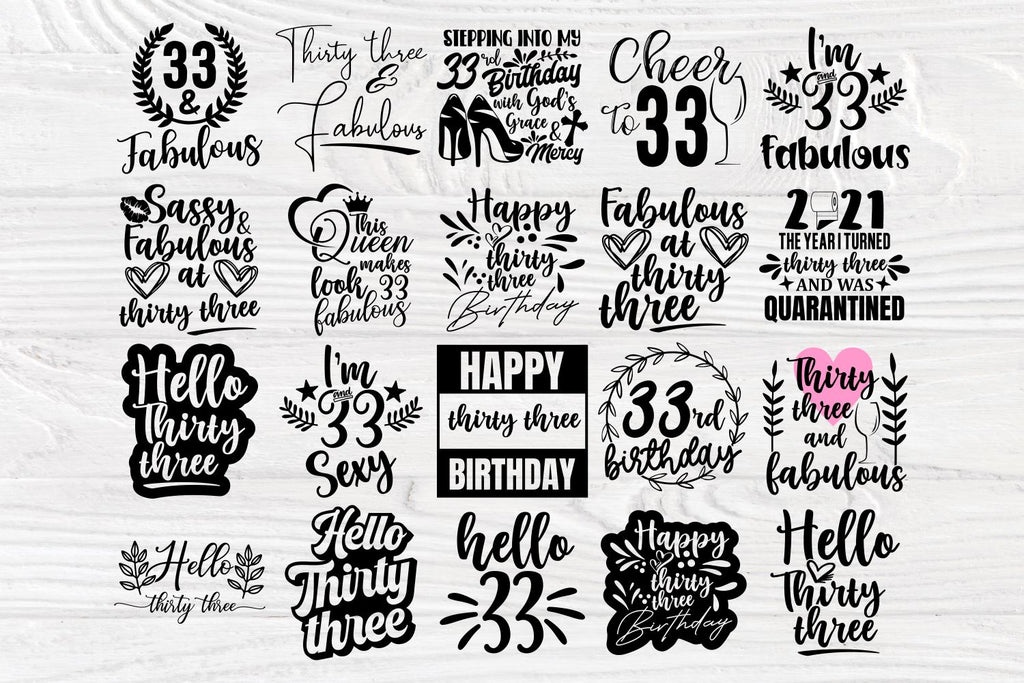 33
&
Fabulous
Thirty three
&
Fabulous
STEPPING INTO MY
33rd Birthday
with God's
Grace &
Mercy
Cheers
to 33
I'm
and
33
fabulous
Sassy
& Fabulous
at
thirty three
This
Queen
makes
look 33
fabulous
Happy
thirty
three
Birthday
Fabulous
at
thirty
three
2021
THE YEAR I TURNED
thirty three
AND WAS
QUARANTINED
Hello
Thirty
three
I'm
and
33
Sexy
HAPPY
thirty three
BIRTHDAY
33rd
birthday
Thirty
three
and
fabulous
Hello
thirty three
Hello
Thirty
three
hello
33
Happy
thirty
three
Birthday
Hello
Thirty
three